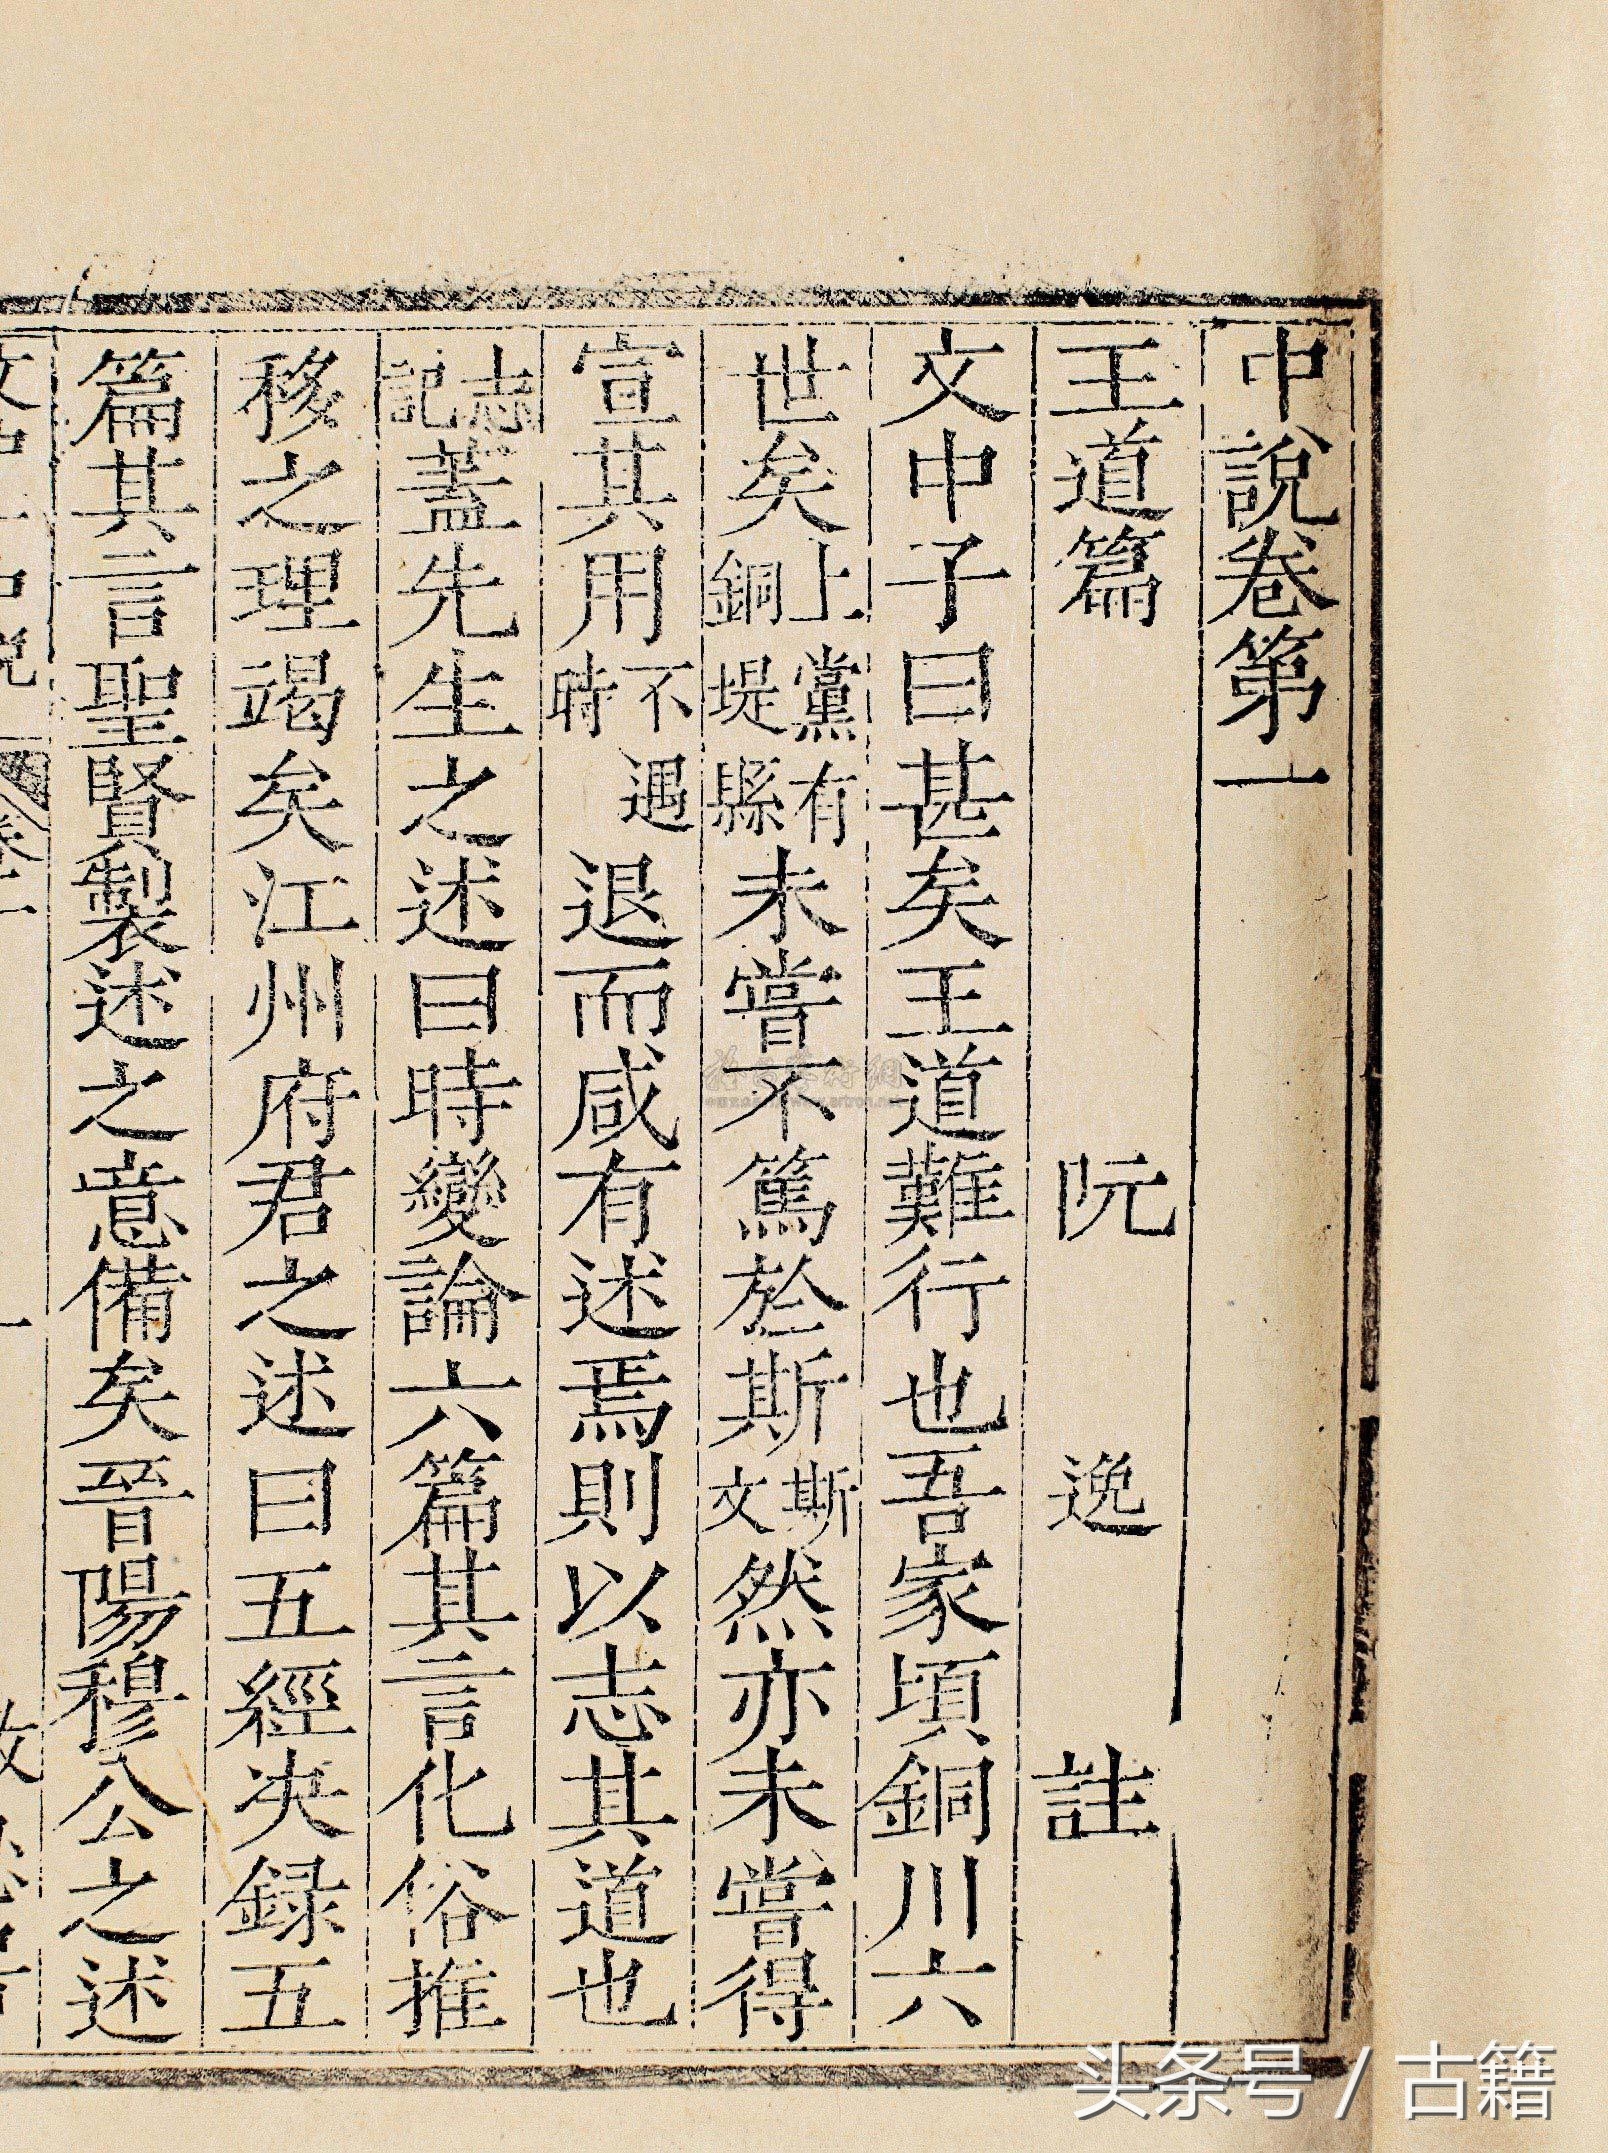 中說卷第一
王道篇 阮 逸 註
文中子曰甚矣王道難行也吾家頃銅川六
世矣上黨有銅堤縣未嘗不篤於斯斯文然亦未嘗得
宣其用不遇時退而咸有述焉則以志其道也
志記蓋先生之述曰時變論六篇其言化俗推
移之理竭矣江州府君之述曰五經決録五
篇其言聖賢製述之意備矣晉陽穆公之述
头条号 / 古籍